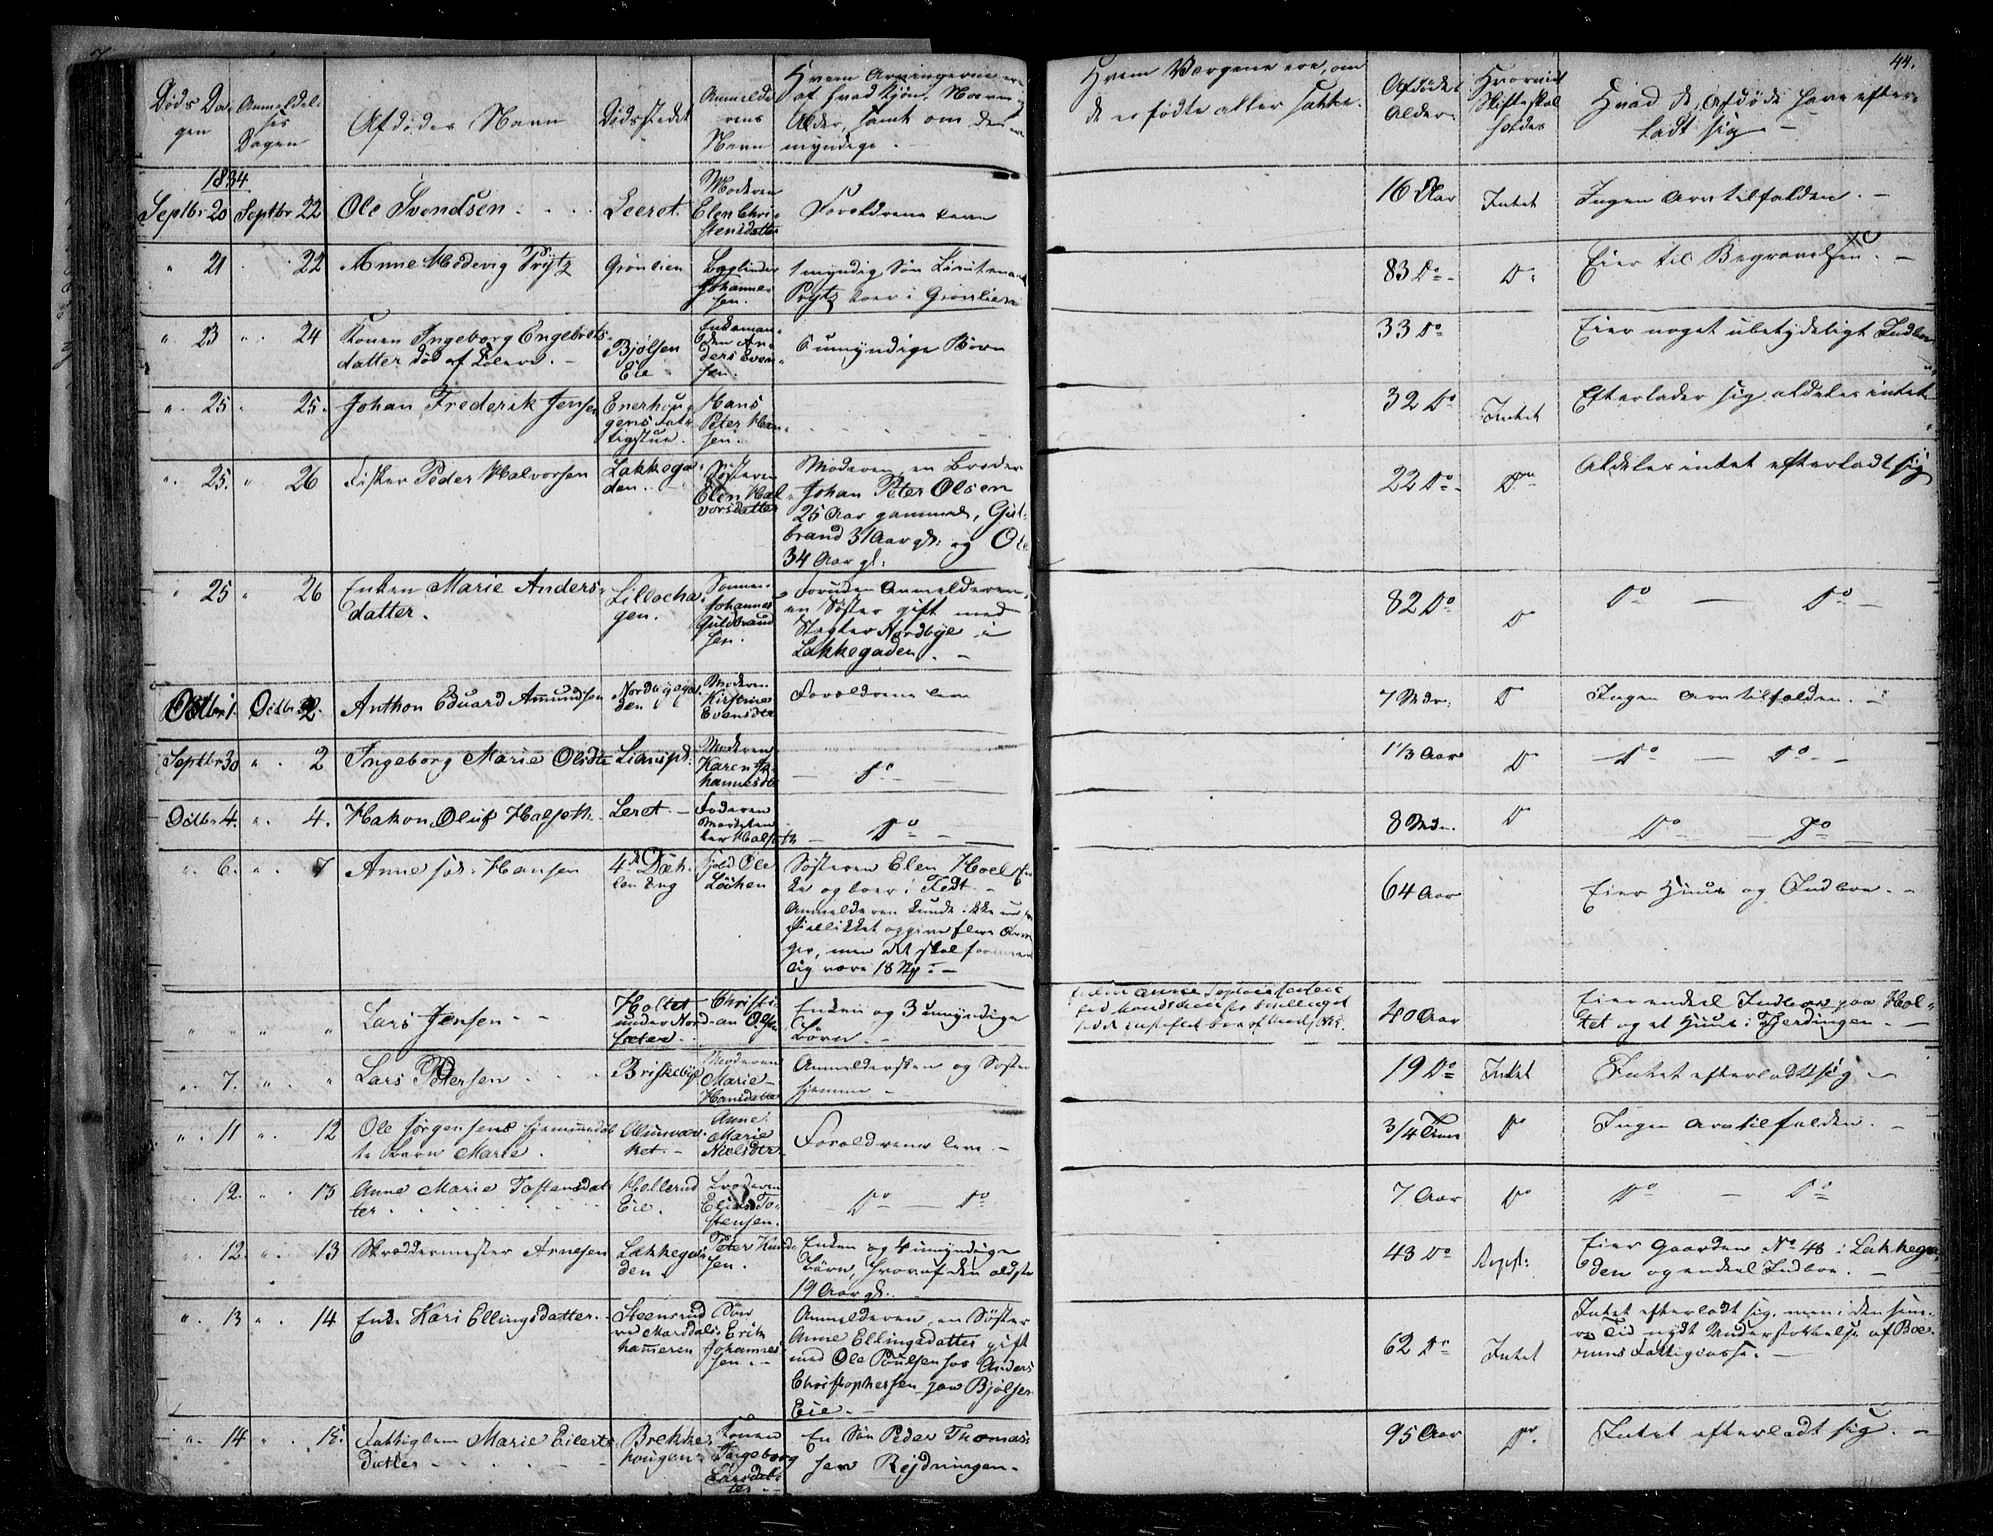 44.
Døds Da-
gen
Anmeldel-
ses
Dagen
Afdødes Navn
Dødsstedet
Anmelde
rens
Navn
Hvem Arvingerne ere
af hvad Kjøn, Navn og
Alder, samt om de ere
myndige.
Hvem Værgene ere, om
de er fødte eller satte.
Afdødes
Alder
Hvorvidt
Skifte skal
holdes
Hvad de Afdøde have efter-
ladt sig
1834
Septbr 20 Septbr 22 Ole Svendsen Leeret.
Moderen
Elen Chri-
stensdatter
Forældrene leve
16 Aar Intet Ingen Arv tilfalden.
" 21 22 Anne Hedevig Prytz Grønlien
Johannes-
sen.
1 myndig Søn Lieutenant
Prytz boer i Grønlien
83 Do Do Eier til Begravelsen.
" 23 " 24 Konen Ingeborg Engebrets-
datter død af Colera.
Bjølsen
Eie
Enkeman-
den An-
ders Even-
sen.
6 umyndige Børn
33 Do Eier noget ubetydeligt Indboe
" 25 " 25. Johan Frederik Jensen
Enerhou-
gens Fat-
tigstue.
Hans
Peter Han-
sen.
32 Do Intet Efterlader sig aldeles intet
" 25. " 26 Fisker Peder Halvorsen
Lakkega-
den.
Søsteren
Elen Hal-
vorsdatter
Moderen, en Broder
Johan Peter Olsen
25 Aar gammel, Gul-
brand 31 Aar gl: og Ole
34 Aar gl:
22 Do Do Aldeles intet efterladt sig
" 25 " 26 Enken Marie Anders-
datter.
Lillocha-
gen.
Sønnen
Johannes
Guldbrand-
sen.
Foruden Anmelderen,
en Søster gift med
Slagter Nordbye i
Lakkegaden.
82 Do Do Do — Do
Octbr 1. Octbr 2. Anthon Eduard Amundsen
Nordbyega-
den
Moderen
Evensdtr
Forældrene leve
7 Mdr. Do Ingen Arv tilfalden.
Septbr 30 " 2 Ingeborg Marie Olsdtr
Moderen
Karen Jo-
hannesdtr
Do
1 1/3 Aar Do Do — Do
Octbr 4. " 4. Hakon Oluf Halseth Leret
Faderen
Do
8 Mdr. Do Do — Do
" 6. " 7 Anne fød: Hansen
Eng
Ole
Lochen
Søsteren Elen Hoel
og boer i
Anmelderen kunde ikke
Øieblikket opgive flere Arvin-
ger, men det skal
lig være 18
64 Aar Eier Huus og Indboe.
" " " " Lars Jensen
Holtet
under Nord-
Christi-
an Olsen
Enken og 3 umyndige
Børn.
40 Aar
Eier endeel Indboe paa Hol-
tet og et Huus i Fjerdingen.
" 7. " " Lars Petersen Briskebye
Moderen
Marie
Hansdatter
Anmeldersken og Søster
hjemme
19 Do Intet Intet efterladt sig
" 11 " 12 Ole Jørgensens hjemmedøb-
te Barn Marie.
Anne
Marie
Nielsdtr
Forældrene leve.
3/4 Time Do Ingen Arv tilfalden.
" 12. " 13 Anne Marie Tostensdat-
ter
Hellerud
Eie.
Broderen
Elias To-
stensen.
Do — Do
7 Aar Do Do — Do
" 12. " 13 Skreddermester Arnesen
Lakkega-
den
Peter Knud-
sen.
Enken og 4 umyndige
Børn, hvoraf den ældste
19 Aar gl.
43 Do
Eier Gaarden No 48 i Lakkega-
den og endeel Indboe.
" 13 " 14 Enke Kari Ellingsdatter
Steensrud
ved Marddals-
hameren
Søn
Erik
Johannes-
sen.
Anmelderen, en Søster
Anne Ellingsdatter gift
med Ole Poulsen hos Anders
Christophersen paa Bjølsen
Eie.
62 Do Intet
Intet efterladt sig, men i den sene-
re Tid nydt Understøttelse af Bæ-
rums Fattigcasse.
" 14 " 15. Fattiglem Marie Eilerts-
datter
Brekke-
hougen
Konen
Ingeborg
Larsdat-
ter
En Søn Peder Thomas-
sen
95 Aar Do Intet efterladt sig.